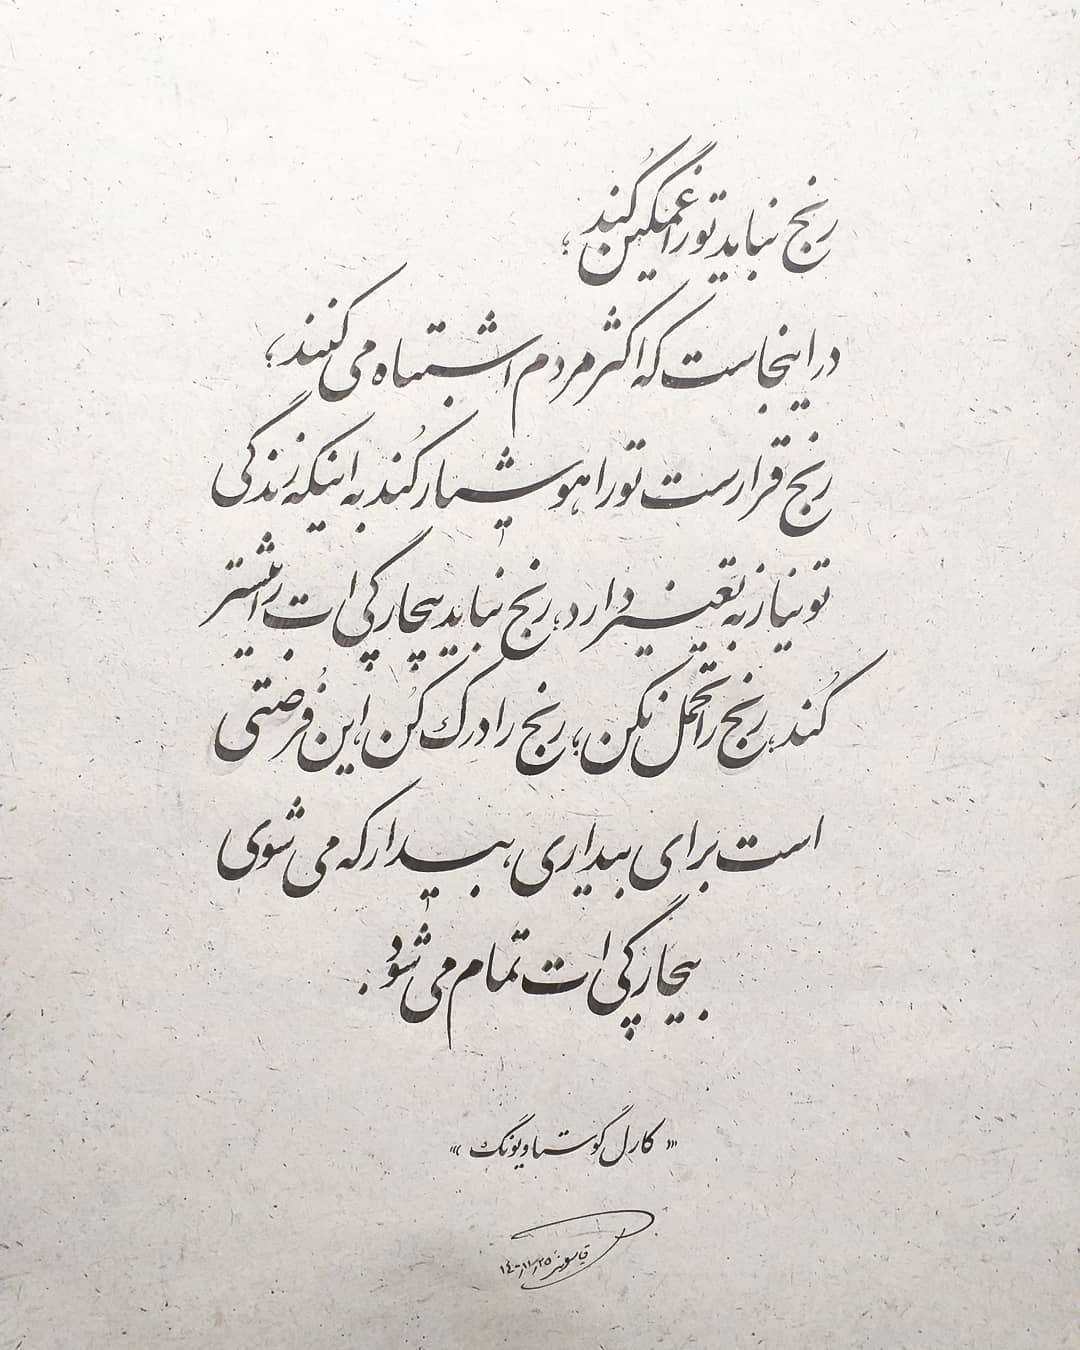 رنج نباید تو را غمگین کُند؛
در اینجاست که اکثر مردم اشتباه می کنند؛
رنج قرارست تو را هوشیار کُند به اینکه زندگی
تو نیاز به تغییر دارد؛ رنج نباید بیچارگی ات را بیشتر
کُند، رنج را تحمل نکن؛ رنج را درک کُن، این فُرصتی
است برای بیداری، بیدار که می شوی
بیچارگی ات تمام می شود.
«کارل گوستاو یونگ»